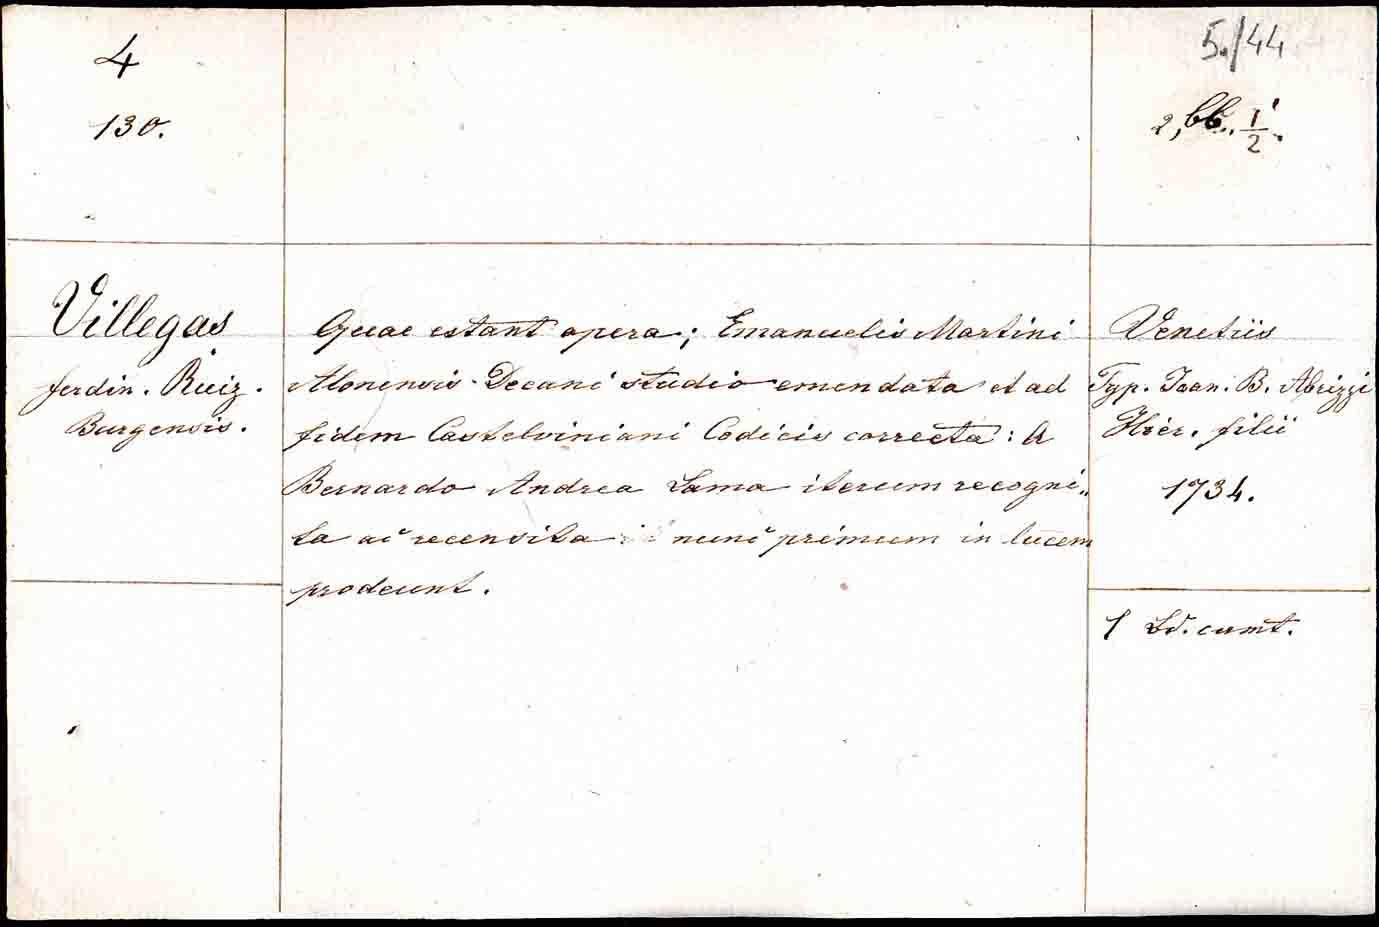 4
130.
5./44
2, bb. 1/2.
Villegas
ferdin. Ruiz.
Burgensis.
Quae estant opera; Emanuelis Martini
Alonensis Decani studio emendata et ad
fidem Castelviniani Codicis correcta: A
Bernardo Andrea Lama iterum recogni„
ta ac recensita nunc primum in lucem
prodeunt.
Venetiis
Typ. Ioan. B. Abrizzi
Hier. filii
1734.
1 Bd.